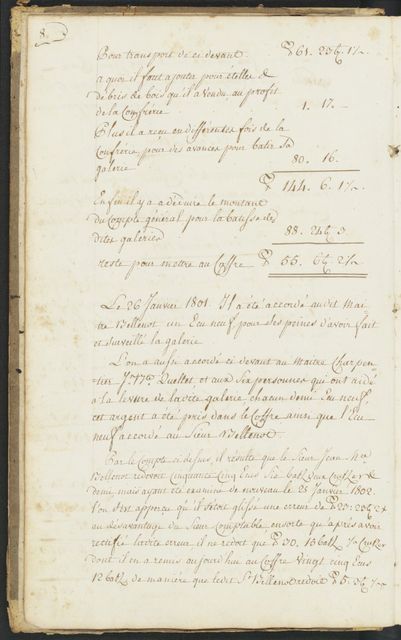 8.
Pour transport de ci devant ₣ 61. 23 1½
a quoi il faut ajouter pour etelles &
debris de bois qu'il a vendu au profit
de la Confrerie 1. 17. —
Plus il a reçu en differentes fois de la
Confrerie, pour des avances pour batir sa
galerie 80. 16.
144. 6. 1½
Enfin il y a a deduire le montant
du Compte general pour la batisse des
dites galeries 88. 24 3.
reste pour mettre au Coffre 55. 6 2½
Le 26 Janvier 1801 Il a été accordé audit Mai
tre Bellenot un Ecu neuf pour des peines d'avoir fait
et surveillé la galerie
L'on a aussi accordé ci devant au Maitre Charpen
tier Quellet et aux Six personnes qui ont aidé
a la levure de la dite galerie chacun demi Ecu neuf
cet argent a été pris dans le Coffre ainsi que l'Ecu
neuf accordé au Sieur Bellenot.
Par le Compte ci dessus, il résulte que le Sieur Jean
Bellenot redevoit cinquante cinq Ecus Six batz deux Creutzer &
demi mais ayant été examiné de nouveau le 25 Janvier 1802
l'on s'est apperçu qu'il s'etoit glissé une erreur de 25: 23
au desavantage du Sieur Comptable ensorte qu'après avoir
rectifié la dite erreur il ne redoit que 30. 18 batz ½ Creutzer
dont il en a remis aujourd'hui au Coffre Vingt cinq Ecus
12 batz de manière que le dit Sr Bellenot redoit 5. 36 ½